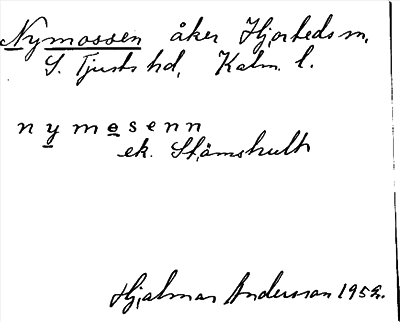 Nymossen åker Hjorteds sn,
S. Tjusts hd, Kalm. l.
nymosenn
ek. Stämshult
Hjalmar Andersson 1952.